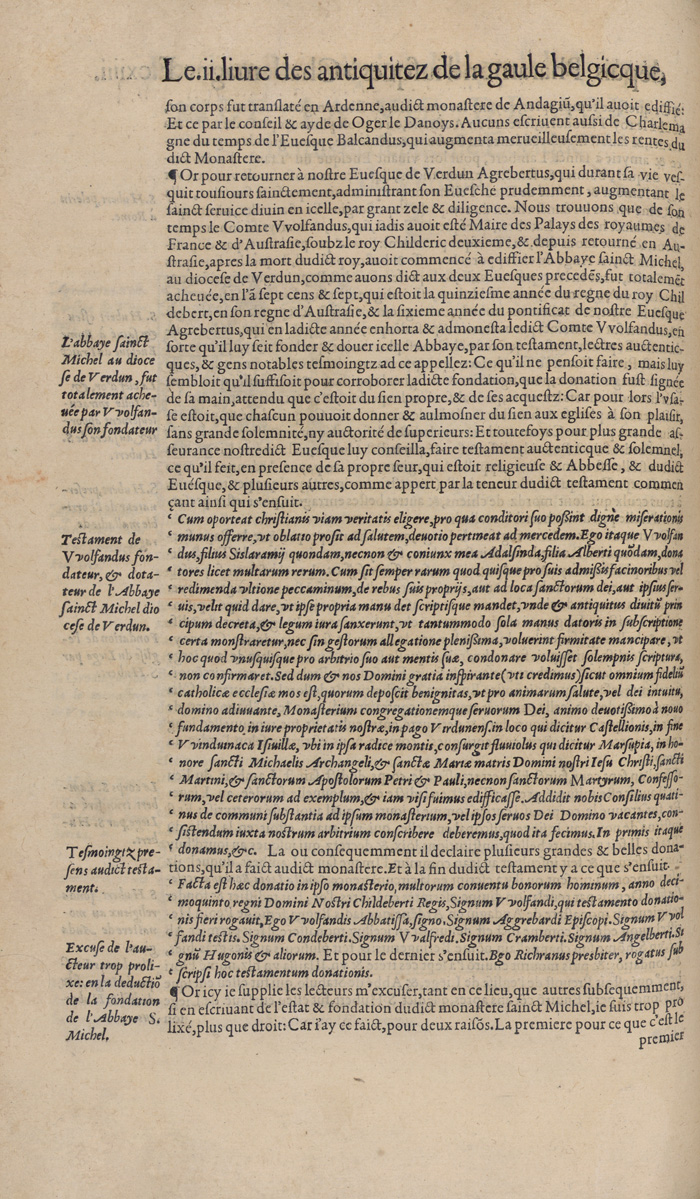 Le.ii.liure des antiquitez de la gaule belgicque,
ſon corps fut tranſlaté en Ardenne,audict monaſtere de Andagiũ,qu'il auoit ediffié:
Et ce par le conſeil & ayde de Oger le Danoys. Aucuns eſcriuent auſsi de Charlema
gne du temps de l'Eueſque Balcandus,qui augmenta merueilleuſement les rentes du
dict Monaſtere.
¶ Or pour retourner à noſtre Eueſque de Verdun Agrebertus,qui durant ſa vie veſ-
quit touſiours ſainctement,adminiſtrant ſon Eueſché prudemment, augmentant le
ſainct ſeruice diuin en icelle,par grant zele & diligence. Nous trouuons que de ſon
temps le Comte Vvolfandus,qui iadis auoit eſté Maire des Palays des royaumes de
France & d'Auſtraſie,ſoubz le roy Childeric deuxieme,& depuis retourné en Au-
ſtraſie,apres la mort dudict roy,auoit commencé à ediffier l'Abbaye ſainct Michel,
au dioceſe de Verdun,comme auons dict aux deux Eueſques precedẽs,fut totalemẽt
acheuée,en l'ã ſept cens & ſept,qui eſtoit la quinzieſme année du regne du roy Chil
debert,en ſon regne d'Auſtraſie,& la ſixieme année du pontificat de noſtre Eueſque
Agrebertus,qui en ladicte année enhorta & admoneſta ledict Comte Vvolfandus,en
ſorte qu'il luy feit fonder & douer icelle Abbaye,par ſon teſtament,lectres auctentic-
ques,& gens notables teſmoingtz ad ce appellez: Ce qu'il ne penſoit faire, mais luy
ſembloit qu'il ſuffiſoit pour corroborer ladicte fondation,que la donation fuſt ſignée
de ſa main,attendu que c'eſtoit du ſien propre,& de ſes acqueſtz: Car pour lors l'vſa-
ſe eſtoit,que chaſcun pouuoit donner & aulmoſner du ſien aux egliſes à ſon plaiſir,
ſans grande ſolemnité,ny auctorité de ſuperieurs: Et toutefoys pour plus grande aſ-
ſeurance noſtredict Eueſque luy conſeilla,faire teſtament auctenticque & ſolemnel,
ce qu'il feit,en preſence de ſa propre ſeur,qui eſtoit religieuſe & Abbeſſe, & dudict
Euéſque,& pluſieurs autres,comme appert par la teneur dudict teſtament commen
çant ainſi qui s'enſuit.
‘ Cum oporteat chriſtianis viam veritatis eligere,pro qua conditori ſuo poſsint digne miſerationis
‘ munus offerre,vt oblatio proſit ad ſalutem,deuotio pertineat ad mercedem.Ego itaque Vvolfan
‘ dus,filius Sislaramij quondam,necnon & coniunx mea Adalſinda,filia Alberti quõdam,dona
‘ tores licet multarum rerum. Cum ſit ſemper rarum quod quiſque pro ſuis admiſsis facinoribus vel
‘ redimenda vltione peccaminum,de rebus ſuis proprijs,aut ad loca ſanctorum dei,aut ipſius ſer-
‘ uis,velit quid dare,vt ipſe propria manu det ſcriptiſque mandet,vnde & antiquitus diuitũ prin
‘ cipum decreta,& legum iura ſanxerunt,vt tantummodo ſola manus datoris in ſubſcriptione
‘ certa monſtraretur,nec ſin geſtorum allegatione pleniſsima,voluerint firmitate mancipare, vt
‘ hoc quod vnuſquiſque pro arbitrio ſuo aut mentis ſuæ, condonare voluiſſet ſolempnis ſcriptura,
‘ non confirmaret.Sed dum & nos Domini gratia inſpirante(vti credimus)ſicut omnium fideliũ
‘ catholicæ eccleſiæ mos eſt,quorum depoſcit benignitas,vt pro animarum ſalute,vel dei intuitu,
‘ domino adiuuante, Monaſterium congregationemque ſeruorum Dei, animo deuotiſsimo à nouo
‘ fundamento,in iure proprietatis noſtræ,in pago Virdunenſ.in loco qui dicitur Caſtellionis,in fine
‘ Vvindumaca Iſuillæ, vbi in ipſa radice montis,conſurgit fluuiolus qui dicitur Marſupia, in ho-
‘ nore ſancti Michaelis Archangeli,& ſanctæ Mariæ matris Domini noſtri Ieſu Chriſti,ſancti
‘ Martini,& ſanctorum Apoſtolorum Petri & Pauli,necnon ſanctorum Martyrum, Confeſſo-
‘ rum,vel ceterorum ad exemplum,& iam viſi fuimus edifficaſſe. Addidit nobis Conſilius quati-
‘ nus de communi ſubſtantia ad ipſum monaſterium,vel ipſos ſeruos Dei Domino vacantes,con-
‘ ſiſtendum iuxta noſtrum arbitrium conſcribere deberemus,quod ita fecimus.In primis itaque
‘ donamus,&c. La ou conſequemment il declaire pluſieurs grandes & belles dona-
tions,qu'il a faict audict monaſtere. Et à la fin dudict teſtament y a ce que s'enſuit.
‘ Facta eſt hæc donatio in ipſo monaſterio,multorum conuentu bonorum hominum, anno deci-
‘ moquinto regni Domini Noſtri Childeberti Regis,Signum Vvolfandi,qui teſtamento donatio-
‘ nis fieri rogauit,Ego Vvolfandis Abbatiſſa,ſigno.Signum Aggrebardi Epiſcopi. Signum Vvol
‘ fandi teſtis. Signum Condeberti.Signum Vvalfredi.Signum Cramberti.Signum Angelberti.Si
‘ gnũ Hugonis & aliorum. Et pour le dernier s'enſuit.Ego Richranus presbiter, rogatus ſub
‘ ſcripſi hoc teſtamentum donationis.
¶ Or icy ie ſupplie les lecteurs m'excuſer,tant en ce lieu,que autres ſubſequemment,
ſi en eſcriuant de l'eſtat & fondation dudict monaſtere ſainct Michel,ie ſuis trop pro
lixé,plus que droit: Car i'ay ce faict,pour deux raiſõs.La premiere pour ce que c'eſt le
premier
L'abbaye ſainct
Michel au dioce
ſe de Verdun, fut
totalement ache-
uée par Vvolfan-
dus ſon fondateur
Teſtament de
Vvolfandus fon-
dateur,& dota-
teur de l'Abbaye
ſainct Michel dio
ceſe de Verdun.
Teſmoingtz pre-
ſens audict teſta-
ment.
Excuſe de l'au-
cteur trop proli-
xe: en la deductiõ
de la fondation
de l'Abbaye S.
Michel.